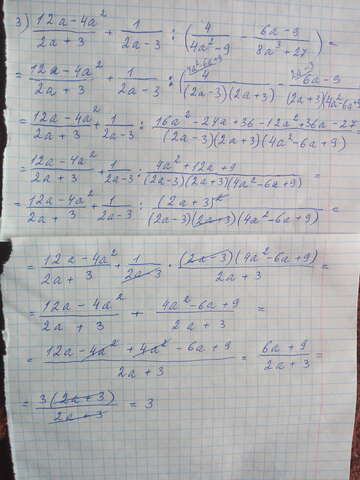 3) (12a-4a²)/(2a+3) + 1/(2a-3) : (4/(4a²-9) - (6a-9)/(8a³+27)) =
= (12a-4a²)/(2a+3) + 1/(2a-3) : (4/((2a-3)(2a+3)) - (6a-9)/((2a+3)(4a²-6a+9)
= (12a-4a²)/(2a+3) + 1/(2a-3) : (16a²-24a+36-12a²+36a-27)/((2a-3)(2a+3)(4a²-6a+9)
= (12a-4a²)/(2a+3) + 1/(2a-3) : (4a²+12a+9)/((2a-3)(2a+3)(4a²-6a+9)) =
= (12a-4a²)/(2a+3) + 1/(2a-3) : (2a+3)²/((2a-3)(2a+3)(4a²-6a+9)) =
= (12a-4a²)/(2a+3) + 1/(2a-3) · ((2a-3)(4a²-6a+9))/(2a+3) =
= (12a-4a²)/(2a+3) + (4a²-6a+9)/(2a+3) =
= (12a-4a²+4a²-6a+9)/(2a+3) = (6a+9)/(2a+3) =
= 3(2a+3)/(2a+3) = 3